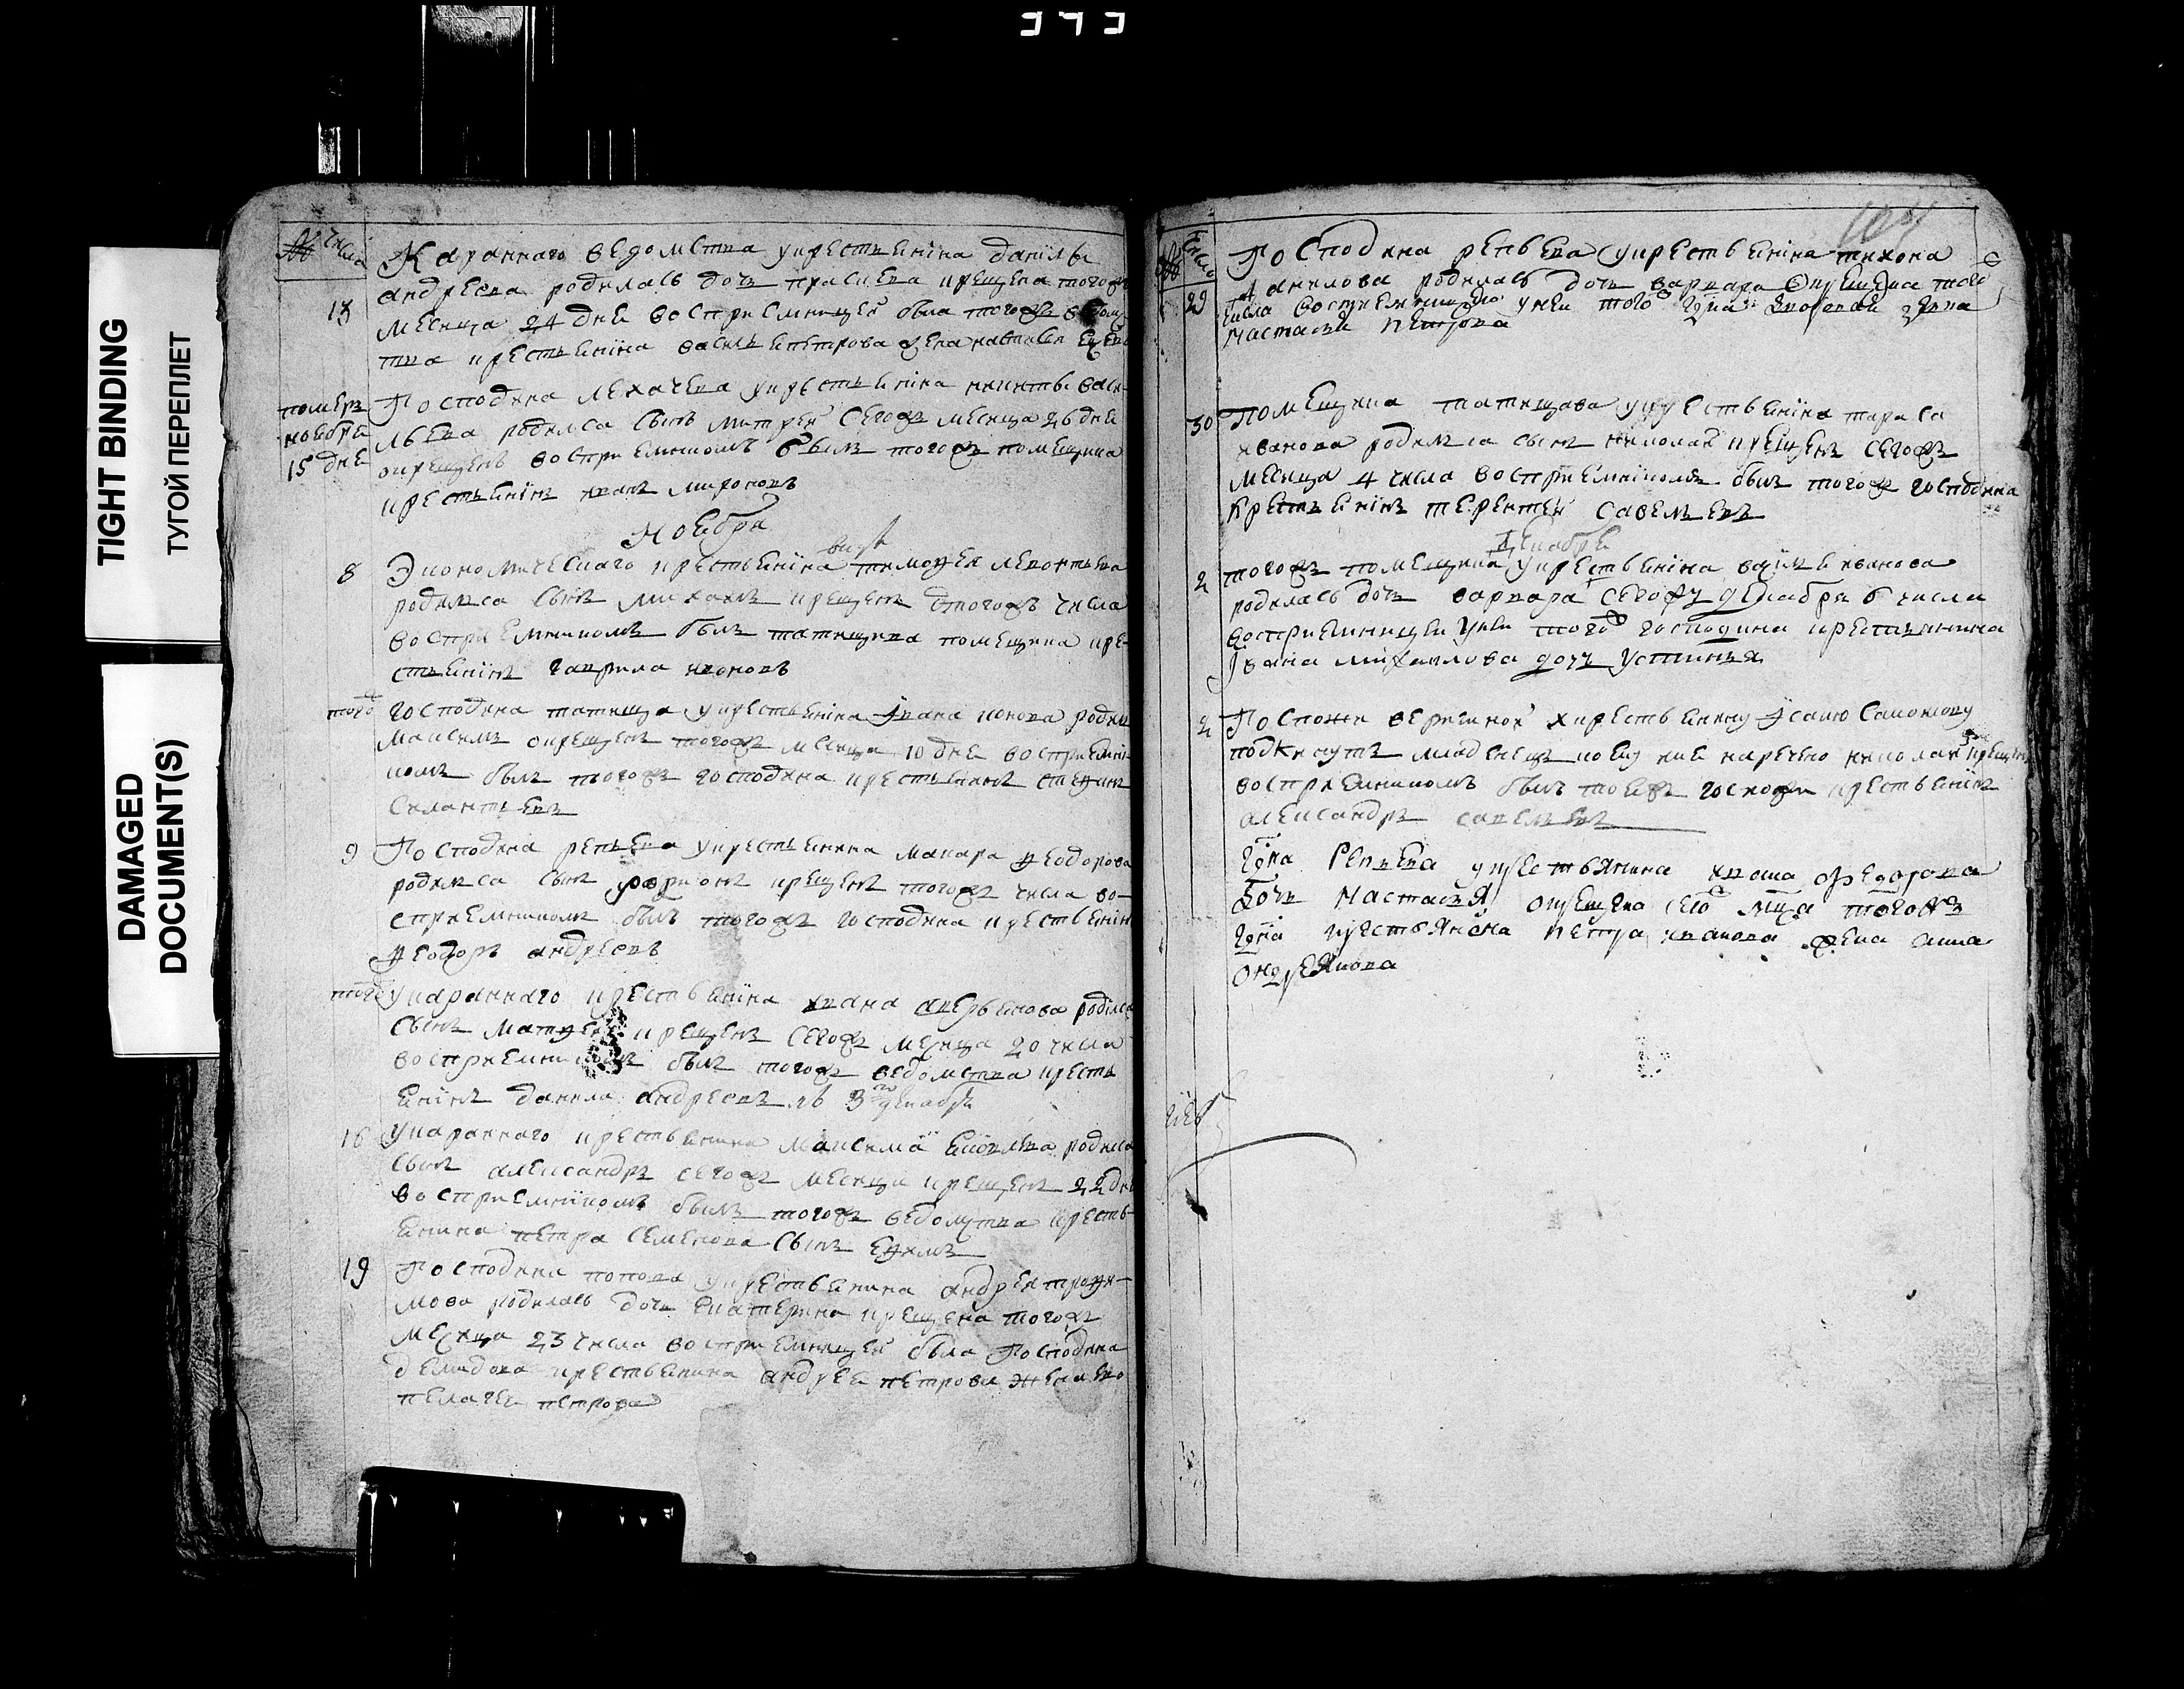 TIGHT BINDING
ТУГОЙ ПЕРЕПЛЕТ
DAMAGED
DOCUMENT(S)
числа
Караннаго ведомства укрестьянина данилы
андреева родилась дочь праскева крещена тогожъ
13
месяца 24 дня восприемницей была тогожъ ведомс
тва крестьянина василья петрова жена наталья
Господина лехачева укрестьянина никиты васи-
померъ
ноября
15 дня
льева родился сынъ митрей сегожъ месяца 26 дня
окрещенъ восприемникомъ былъ тогожъ помещика
крестьянинъ иванъ мироновъ
Ноября
8
Экономическаго крестьянина тимофея леонтьева
родился сынъ михаилъ крещенъ тогожъ числа
восприемникомъ былъ татищева помещика кре-
стьянинъ гаврила
тогож
господина татища укрестьянина Ивана родил
максимъ окрещенъ тогожъ месяца 10 дня восприемни
комъ былъ тогожъ господина крестьянинъ степанъ
9
Господина репьева укрестьянина макара феодорова
родился сынъ крещенъ тогожъ числа во-
сприемникомъ былъ тогожъ господина крестьянин
феодоръ андреевъ
тогож
укараннаго крестьянина ивана аверьянова родился
сынъ матфей крещенъ сегожъ месяца 20 числа
восприемникомъ былъ тогожъ ведомства кресть
янинъ данила андреевъ 3 декабря
16
укараннаго крестьянина максима родился
сынъ александръ сегожъ месяца крещенъ 22 дня
восприемникомъ былъ тогожъ ведомства кресть-
янина петра семенова сынъ ефимъ
19
Господина попова укрестьянина андрея трофи-
мова родилась дочь екатерина крещена тогожъ
месяца 23 числа восприемницей была Господина
демидова крестьянина андрея петрова жена
пелагея петрова
104
число
29
Господина репьева укрестьянина тихона
данилова родилась дочь варвара окрещена того
числа восприемницею унеи того гдна
настасья петрова
30
помещика татищава укрестьянина тараса
иванова родился сынъ николай крещенъ сегожъ
месяца 4 числа восприемникомъ былъ тогожъ господина
крестьянинъ терентей савельевъ
Декабря
2
тогожъ помещика укрестьянина иванова
родилась дочь варвара сегожъ декабря 6 числа
восприемницеи унеи того господина крестьянина
Ивана михаилова дочь устинья
2
Госпожи веригиной хкрестьянину Исаю
подкинутъ младенецъ коему имя наречено николай крещен
восприемникомъ былъ тояжъ госпожи крестьянинъ
александръ савельевъ
Гдна Репьева укрестьянина федорова
дочь Настасья окрещена сего мца тогожъ
Гдна крестьянина петра иванова жена анна
ондреянова